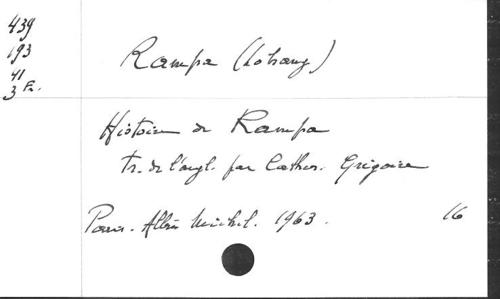 439
193
41
3 Fr.
Rampa (Lobsang)
Histoire de Rampa
tr. de l'angl. par Cather. Grégoire
Paris. Albin Michel. 1963.
16